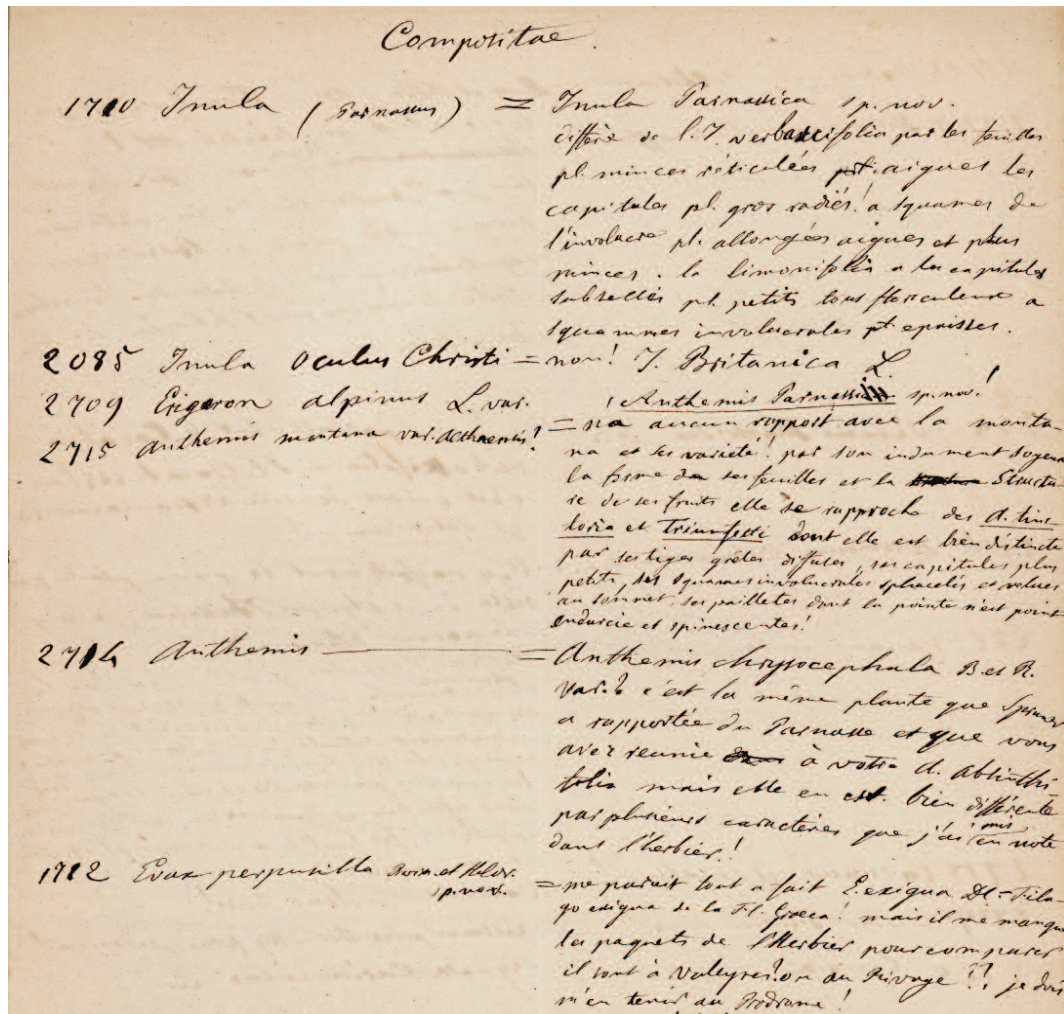 Compositae.
1710 Inula (Parnassus) = Inula Parnassica sp. nov.
diffère de l'I. verbascifolia par les feuilles
pl. minces réticulées pl. aigues les
capitules pl. gros radiés! a squames de
l'involucre pl. allongées aigues et plus
minces. la limonifolia a les capitules
subsessiles pl. petits tous flosculeux a
squammes involucrales pl. epaisses.
2085 Inula Oculus Christi = non! I. Britanica L.
2709 Erigeron alpinus L. var.
! Anthemis Parnassica sp. nov!
2715 Anthemis montana var. = n'a aucun rapport avec la monta-
na et ses variété! par son indument soyeux
la forme de ses feuilles et la Structu-
re de ses fruits elle se rapproche des A. tinc-
toria et Triumfetti dont elle est bien distincte
par ses tiges grêles diffuses, ses capitules plus
petits, ses squames involucrales sphacelés et velues
au sommet. ses paillettes dont la pointe n'est point
endurcie et spinescentes!
2714 Anthemis ——— = Anthemis chrysocephala B. et R.
var. b c'est la même plante que Spruner
a rapportée du Parnasse et que vous
avez reunie à votre A. absinthi
folia mais elle en est bien différente
par plusieurs caractères que j'ai mis en note
dans l'herbier!
1712 Evax perpusilla Boiss. et Heldr.
sp. nov. = me parait tout a fait E. exigua DC = Fila-
go exigua de la Fl. Graeca! mais il me manque
les paquets de l'Herbier pour comparer
il sont à Valeyres? ou au Rivage??. je dois
m'en tenir au Prodrome!